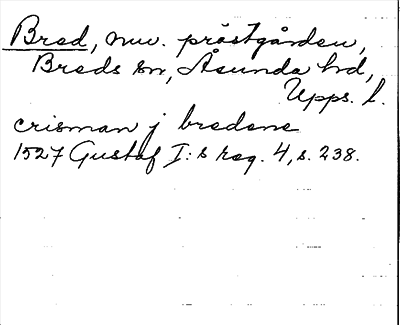 Bred, nuv. prästgården,
Breds sn, Åsunda hd,
Upps. l.
crisman j bredene
1527 Gustaf I:s reg. 4, s. 238.